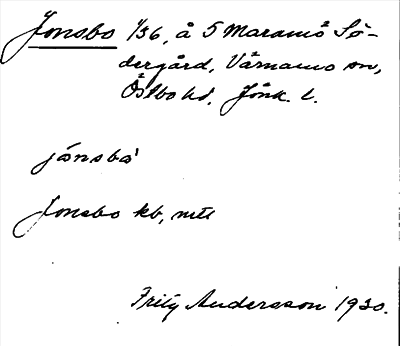 Jonsbo 1/36, å 5 Maramö Sö-
dergård, Värnamo sn,
Östbo hd, Jönk. l.
jónsbo'
Jonsbo kb, mtl
Fritz Andersson 1930.